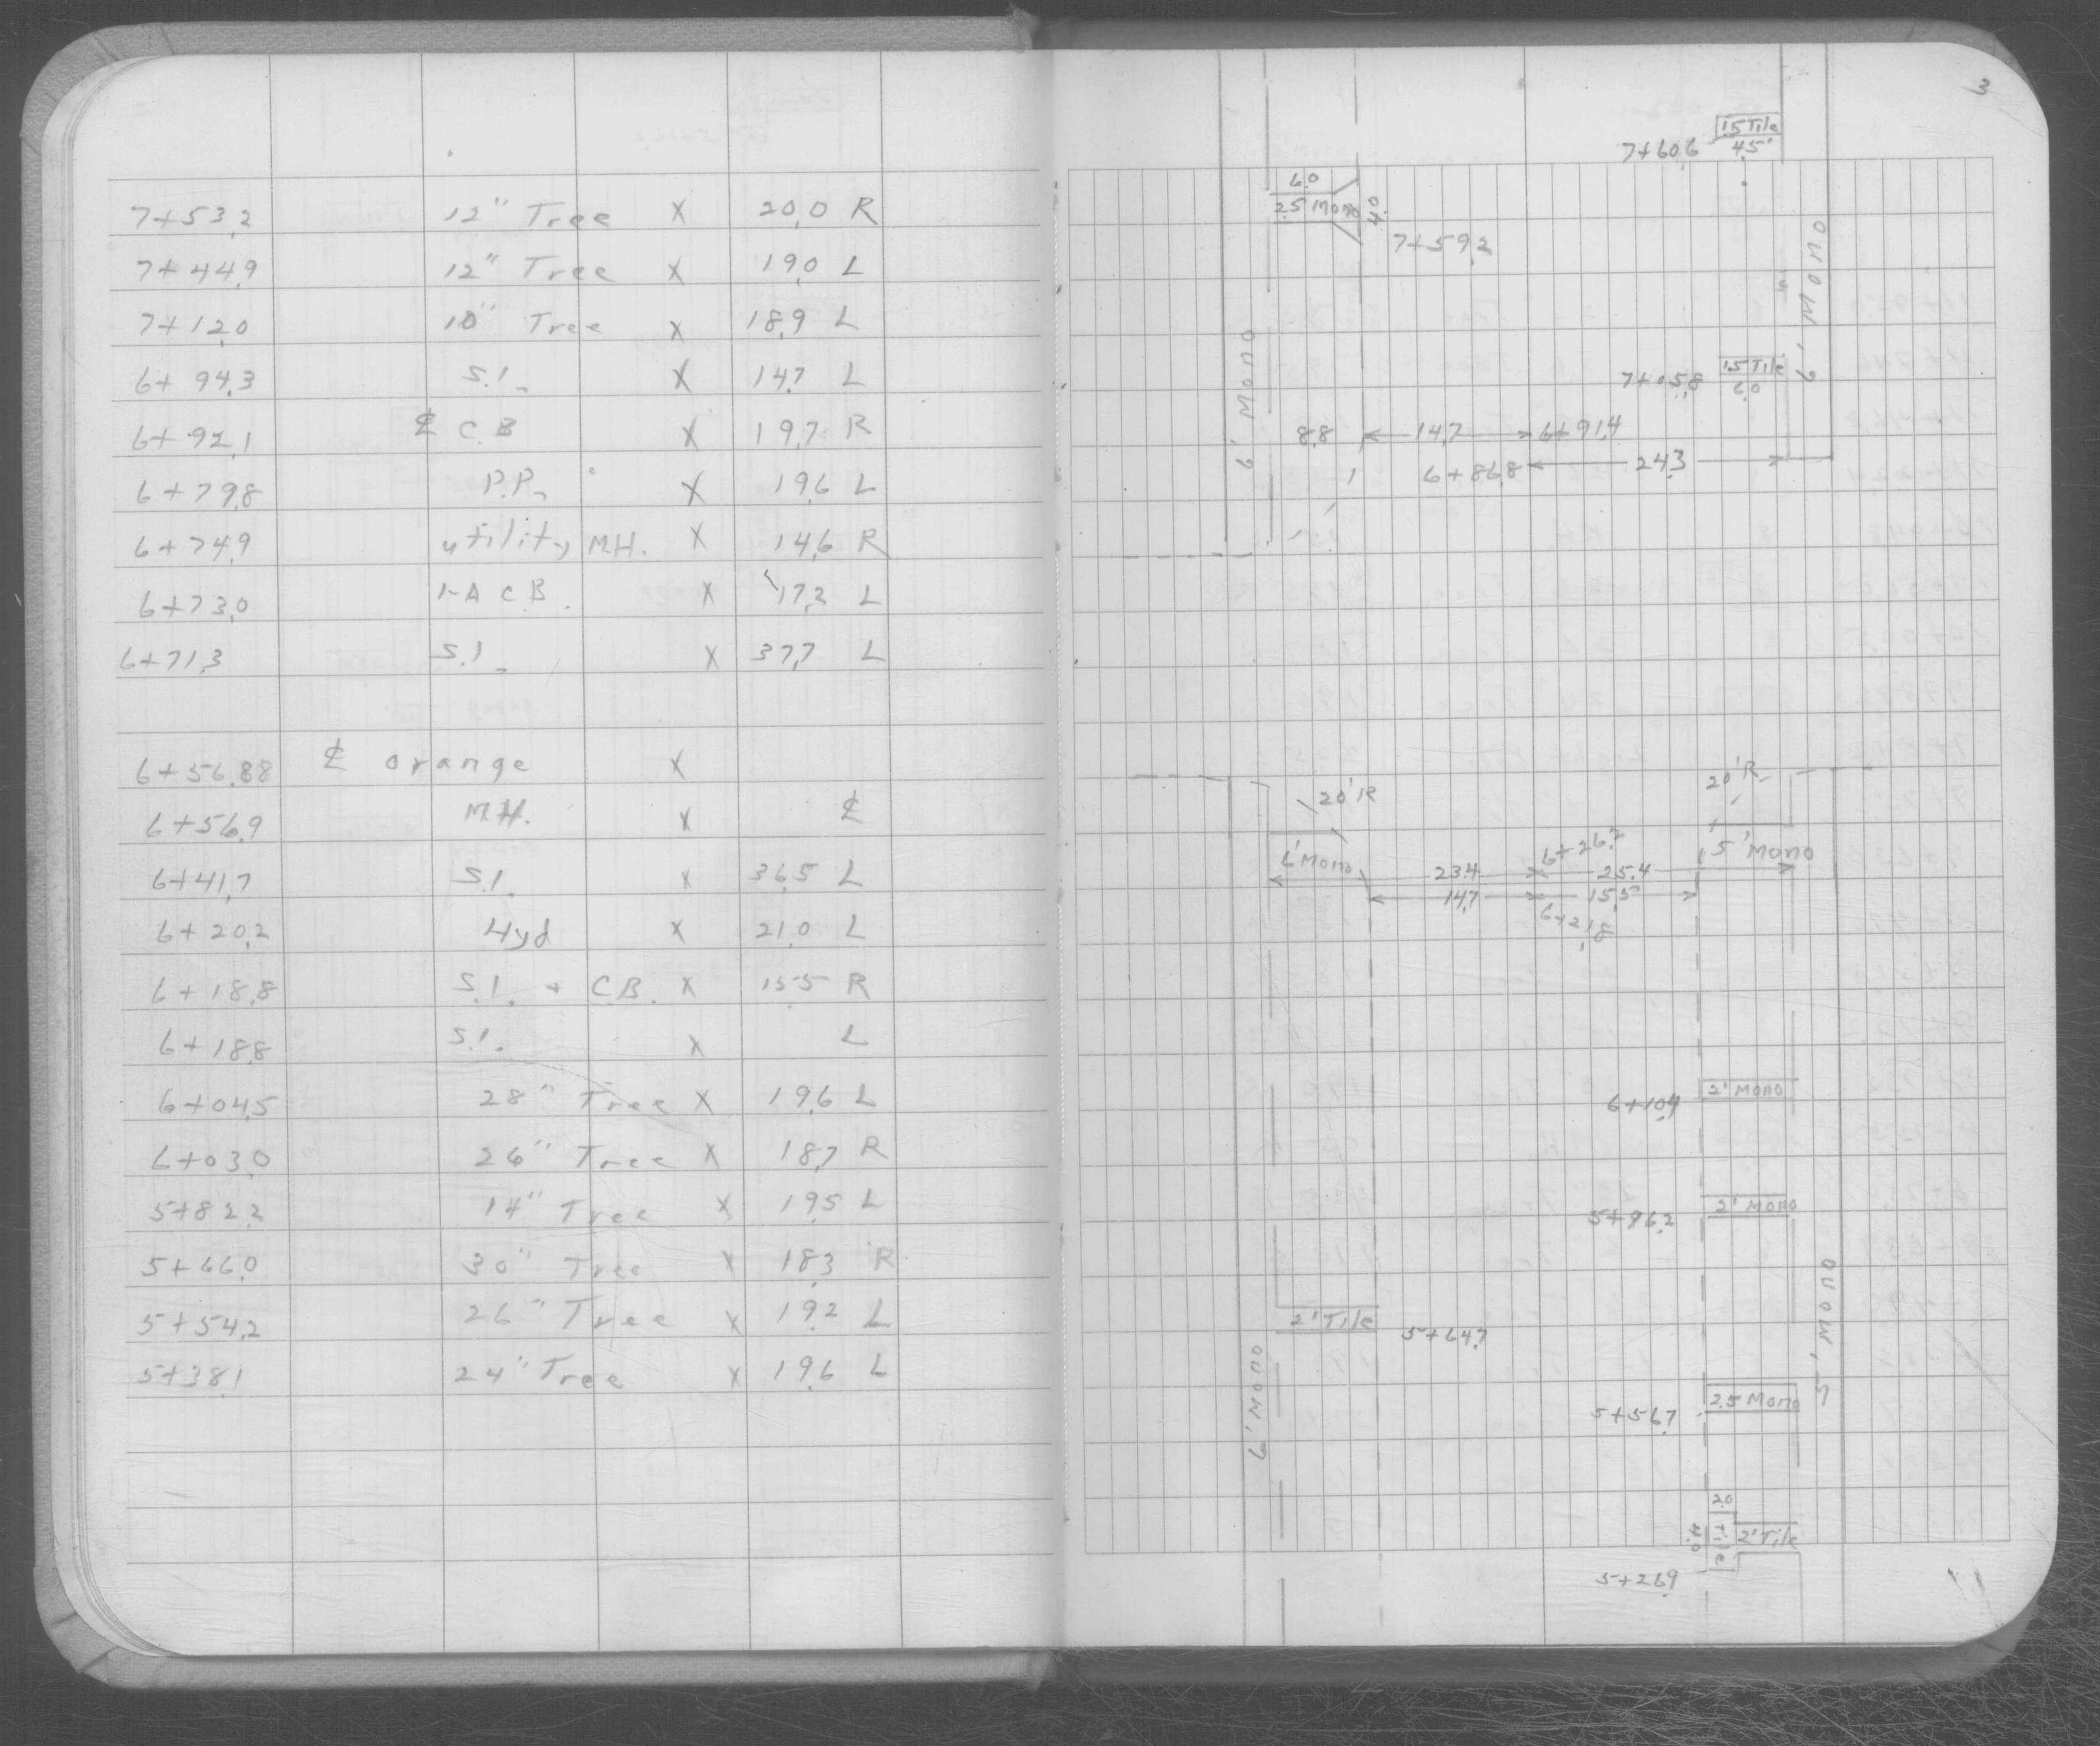 7+53.2 12" Tree X 20.0 R
7+44.9 12" Tree X 19.0 L
7+12.0 10" Tree X 18.9 L
6+94.3 S.I. X 14.7 L
6+92.1 ℄ C.B X 19.7 R
6+79.8 P.P. X 19.6 L
6+74.9 utility M.H. X 14.6 R
6+73.0 1-A C.B. X 17.2 L
6+71.3 S.I. X 37.7 L
6+56.88 ℄ orange X
6+56.9 M.H. X ℄
6+41.7 S.I. X 36.5 L
6+20.2 Hyd X 21.0 L
6+18.8 S.I. + C.B. X 15.5 R
6+18.8 S.I. X L
6+04.5 28" Tree X 19.6 L
6+03.0 26" Tree X 18.7 R
5+82.2 14" Tree X 19.5 L
5+66.0 30" Tree X 18.3 R
5+54.2 26" Tree X 19.2 L
5+38.1 24" Tree X 19.6 L
3
7+60.6 1.5 Tile
4.5'
6.0
2.5 Mono 4.0
7+59.2
6' Mono
6' Mono
7+05.8 1.5 Tile
6.0
8.8 14.7 6+91.4
6+86.8 24.3
20'R 20'R
6' Mono 23.4 6+26.2 25.4 5' Mono
14.7 6+21.8 15.5
6+10.4 2' Mono
5+96.2 2' Mono
5' Mono
2' Tile 5+64.7
6' Mono
5+56.7 2.5 Mono
2.0
4.0 Tile 2' Tile
5+26.9